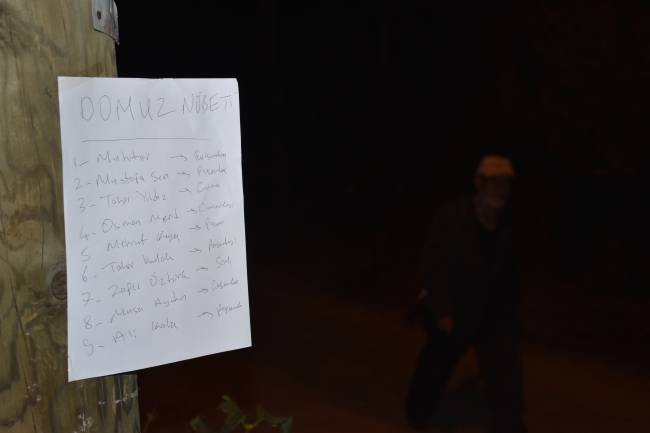 DOMUZ NÖBETİ
1- Muhtar → Çarşamba
2- Mustafa Şen → Perşembe
3- Tahir Yıldız → Cuma
4- Osman → Cumartesi
5- Mehmet Kaya → Pazar
6- Tahir → Pazartesi
7- Zafer Öztürk → Salı
8- Musa Aydın → Çarşamba
9- Ali → Perşembe